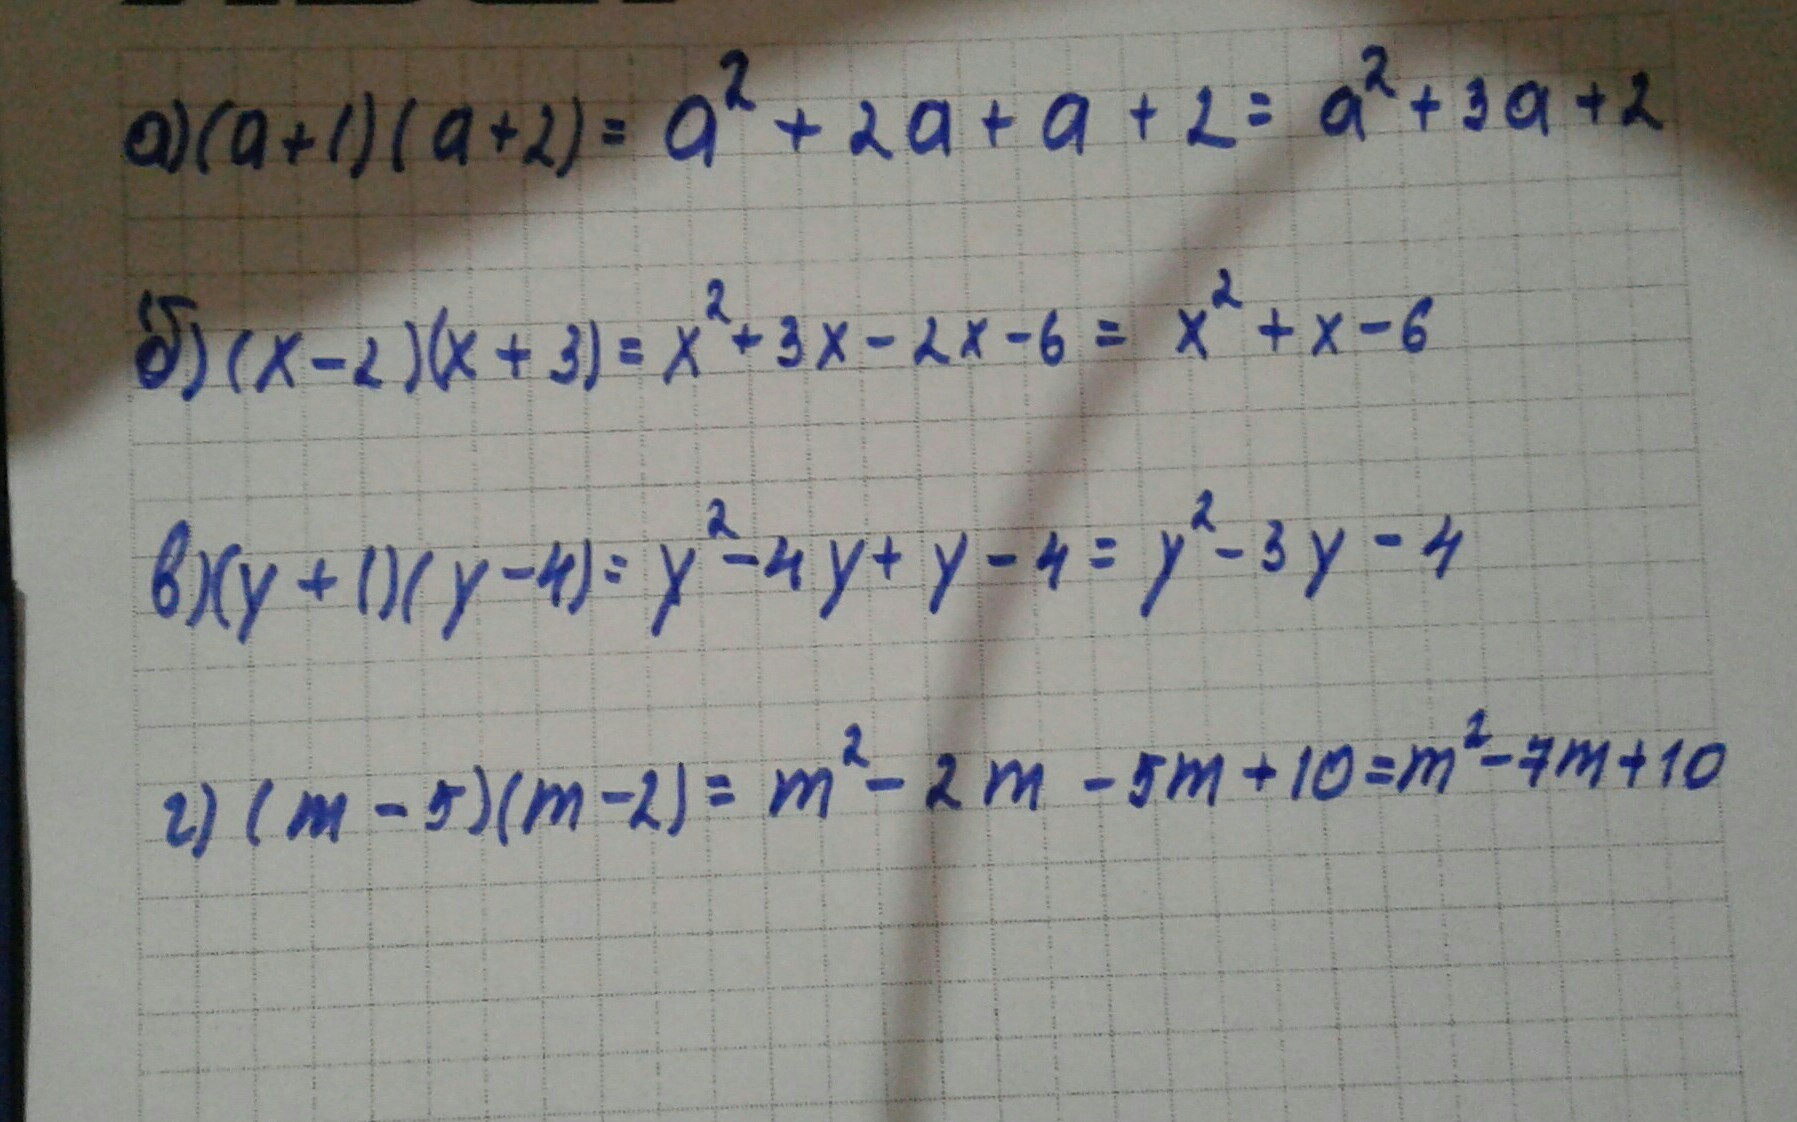 а) (a+1)(a+2) = a² + 2a + a + 2 = a² + 3a + 2
б) (x-2)(x+3) = x² + 3x - 2x - 6 = x² + x - 6
в) (y+1)(y-4) = y² - 4y + y - 4 = y² - 3y - 4
г) (m-5)(m-2) = m² - 2m - 5m + 10 = m² - 7m + 10